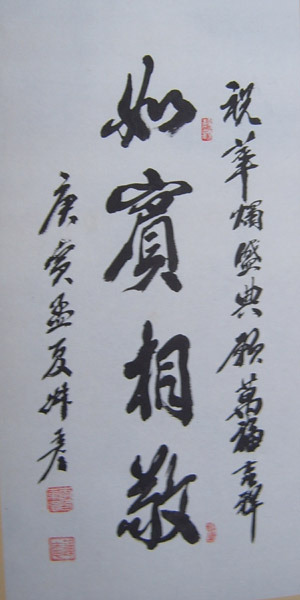 祝華燭盛典願萬福吉祥
如賓相敬
庚寅孟夏